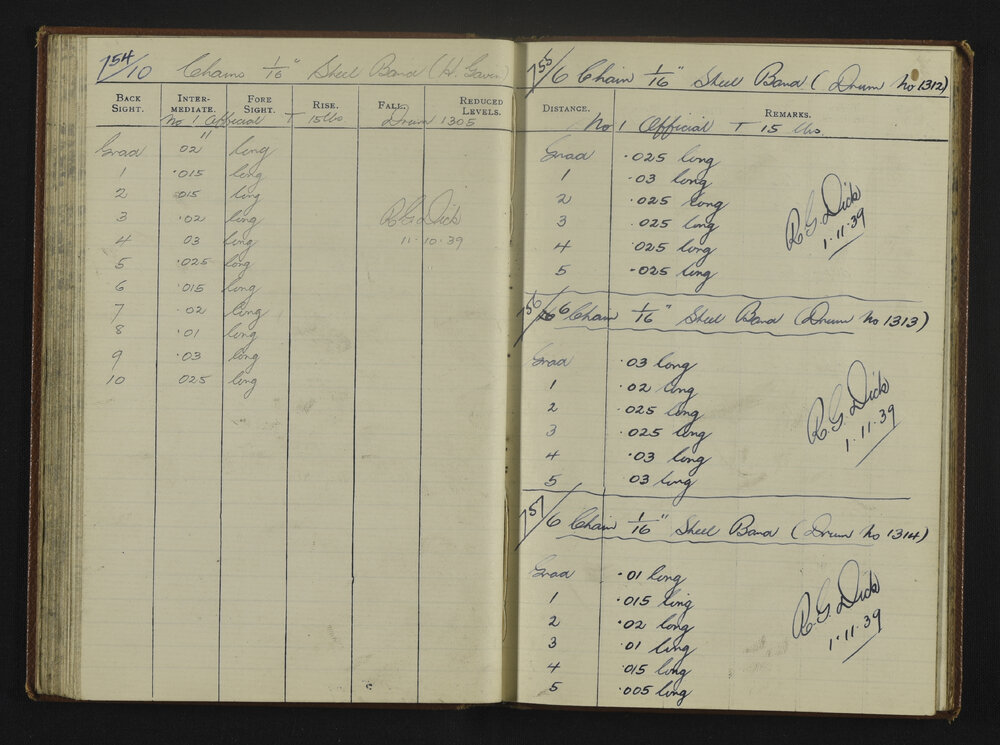 154/10 Chains 1/16" Steel Band (H. Gavin)
BACK SIGHT. INTER-MEDIATE. FORE SIGHT. RISE. FALL. REDUCED LEVELS.
No 1 Official T 15 lbs Drum 1305
Grad 02" long
1 .015 long
2 015 long
3 .02 long
4 03 long
5 .025 long
6 .015 long
7 .02 long
8 .01 long
9 .03 long
10 .025 long
R G Dick
11.10.39
155/6 Chain 1/16" Steel Band (Drum No 1312)
DISTANCE. REMARKS.
No 1 Official T 15 lbs
Grad .025 long
1 .03 long
2 .025 long
3 .025 long
4 .025 long
5 .025 long
R. G. Dick
1.11.39
156/6 Chain 1/16" Steel Band (Drum No 1313)
Grad .03 long
1 .02 long
2 .025 long
3 .025 long
4 .03 long
5 .03 long
R. G. Dick
1.11.39
157/6 Chain 1/16" Steel Band (Drum No 1314)
Grad .01 long
1 .015 long
2 .02 long
3 .01 long
4 .015 long
5 .005 long
R. G. Dick
1.11.39